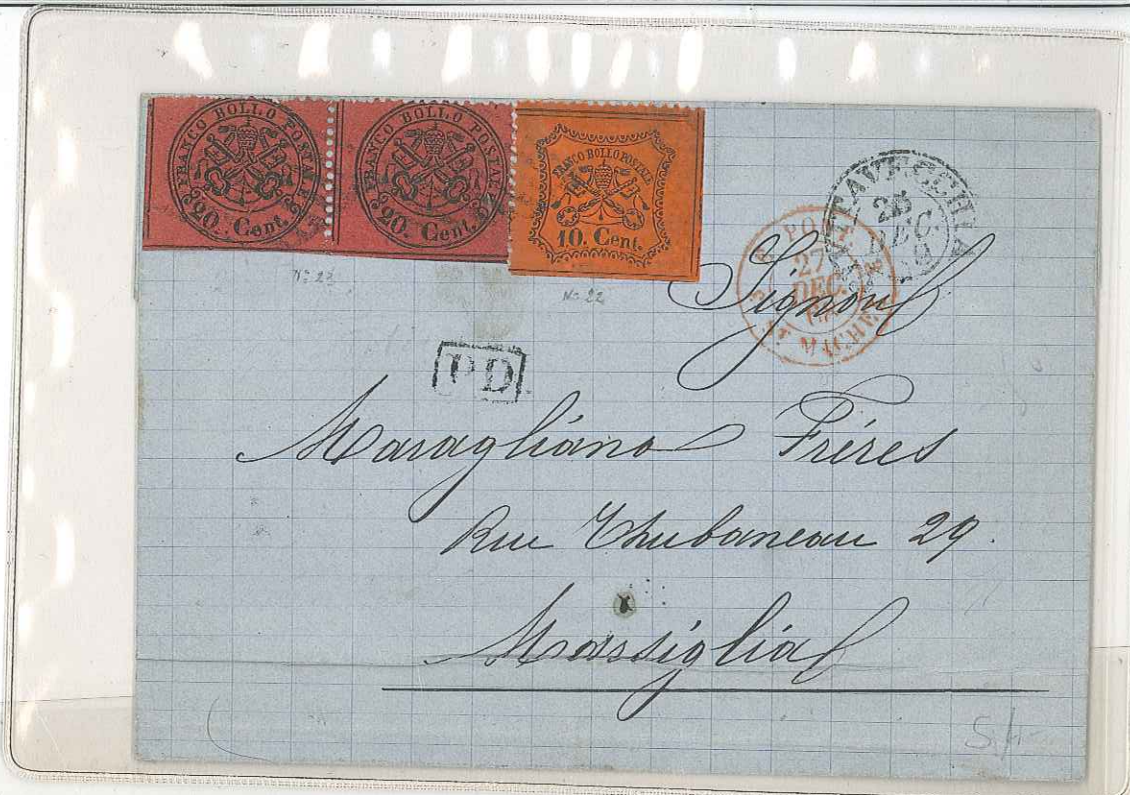 FRANCO BOLLO POSTALE
20. Cent.
FRANCO BOLLO POSTALE
20. Cent.
FRANCO BOLLO POSTALE
10. Cent.
No 22
27
DEC.
25
DEC.
PD
Signori
Maragliano Fréres
Rue Thubaneau 29.
Marsiglia